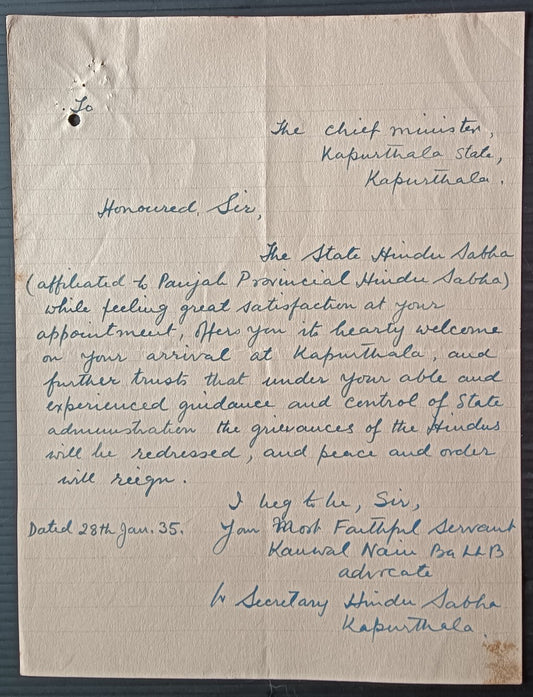 To
The Chief Minister,
Kapurthala State,
Kapurthala.
Honoured, Sir,
The State Hindu Sabha
(affiliated to Panjab Provincial Hindu Sabha)
while feeling great satisfaction at your
appointment, offers you its hearty welcome
on your arrival at Kapurthala, and
further trusts that under your able and
experienced guidance and control of State
administration the grievances of the Hindus
will be redressed, and peace and order
will reign.
I beg to be, Sir,
Dated 28th Jan. 35.
Your Most Faithful Servant
Kanwal Nain BA LLB
advocate
Secretary Hindu Sabha
Kapurthala.